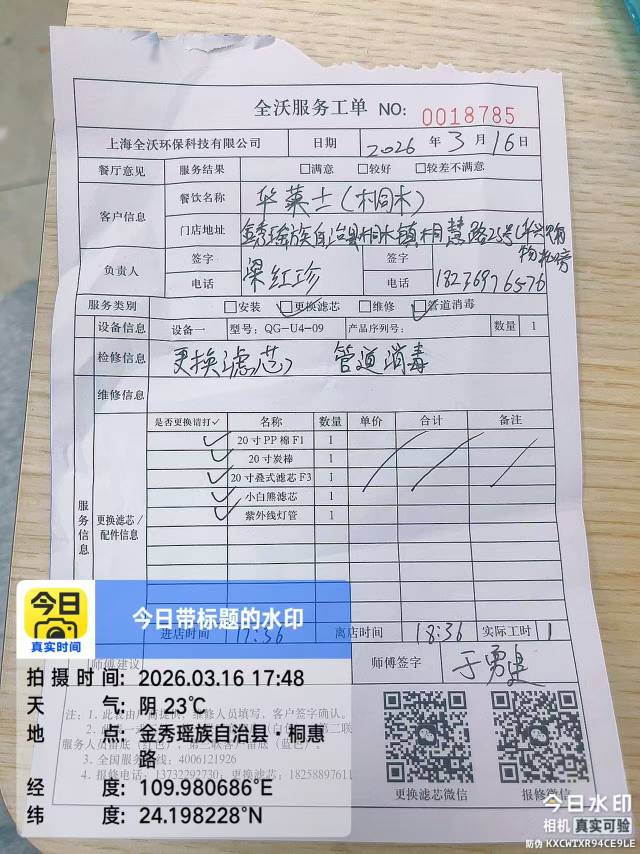 全沃服务工单 NO: 0018785
上海全沃环保科技有限公司 日期 2026 年 3 月 16 日
餐厅意见 服务结果 □满意 □较好 □较差不满意
客户信息 餐饮名称 华莱士(桐木)
门店地址 金秀瑶族自治县桐木镇桐慧路25号
负责人 签字 梁红珍 签字
电话 电话 18276976576
服务类别 □安装 ☑更换滤芯 □维修 ☑管道消毒
设备信息 设备一 型号: QG-U4-09 产品序列号: 数量 1
检修信息 更换滤芯 管道消毒
维修信息
服务信息 更换滤芯/配件信息
是否更换请打✓ 名称 数量 单价 合计 备注
✓ 20寸PP棉F1 1
✓ 20寸炭棒 1
✓ 20寸叠式滤芯F3 1
✓ 小白熊滤芯 1
✓ 紫外线灯管 1
进店时间 17:36 离店时间 18:36 实际工时 1
师傅建议 师傅签字
注: 1. 此
维修人员填写, 客户签字确认。
3. 全国服务
线: 4006121926
4. 报修电话: 13732292730; 更换滤芯: 18258897611
更换滤芯微信 报修微信
今日 真实时间
今日带标题的水印
拍摄时间: 2026.03.16 17:48
天气: 阴 23℃
地点: 金秀瑶族自治县·桐惠路
经度: 109.980686°E
纬度: 24.198228°N
今日水印
相机 真实可验
防伪 KXCWTXR94CE9LE